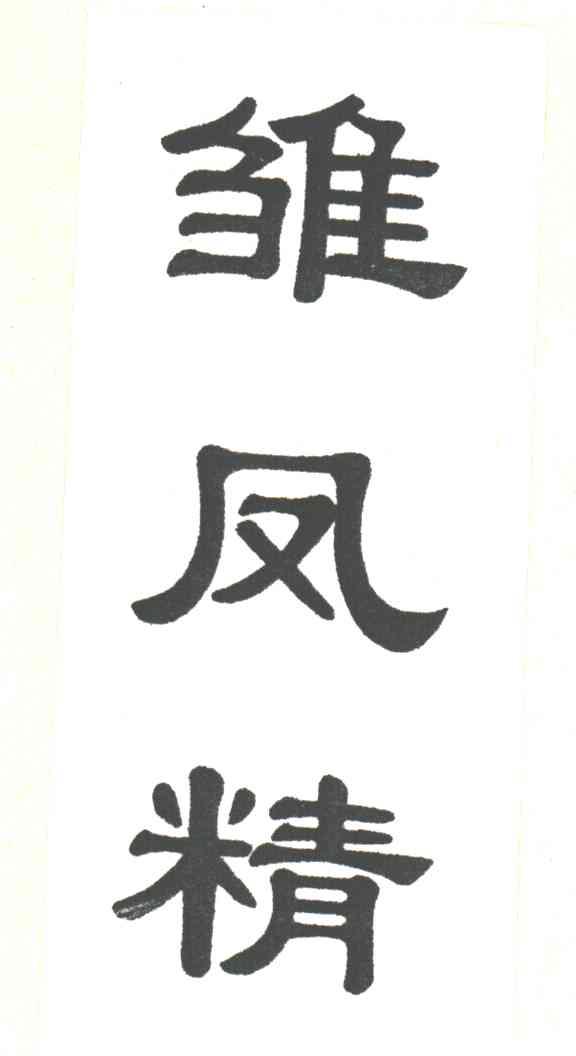 雏凤精